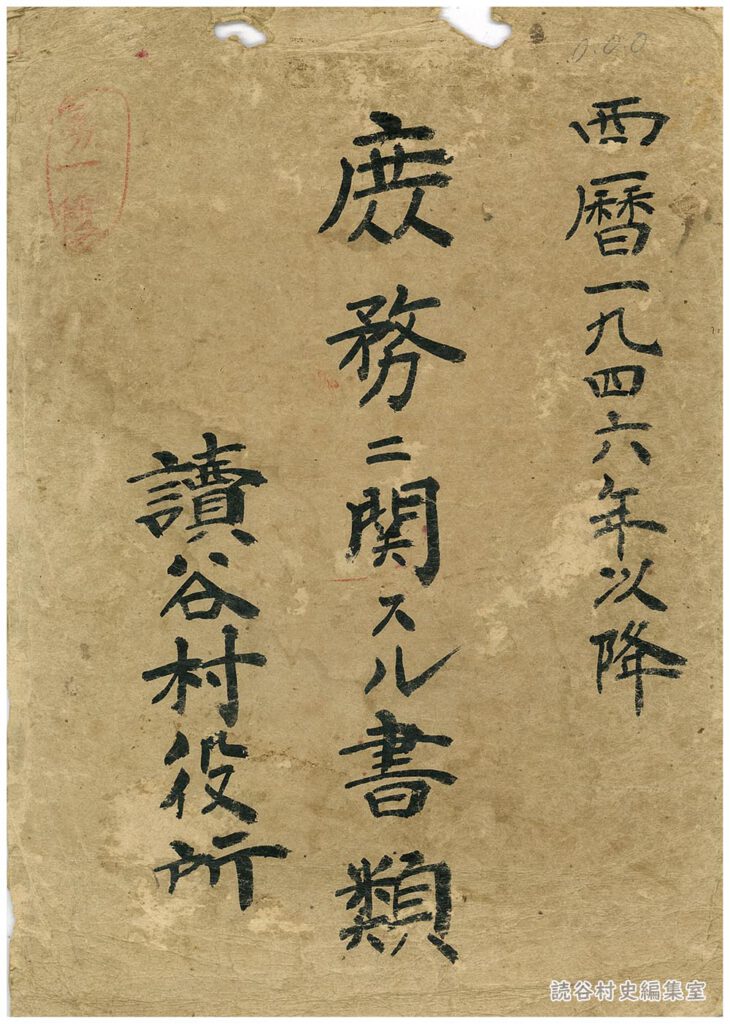 西暦一九四六年以降
庶務ニ関スル書類
讀谷村役所
読谷村史編集室